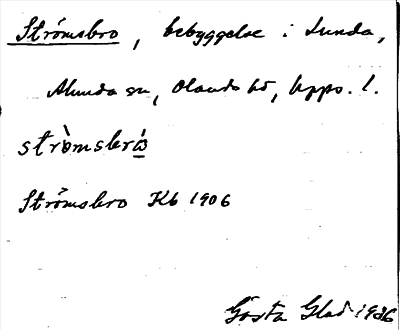 Strömsbro, bebyggelse i Lunda,
Alunda sn, Olands hd, Upps. l.
strö̀msbró
Strömsbro Kb 1906
Gösta Glad 1936